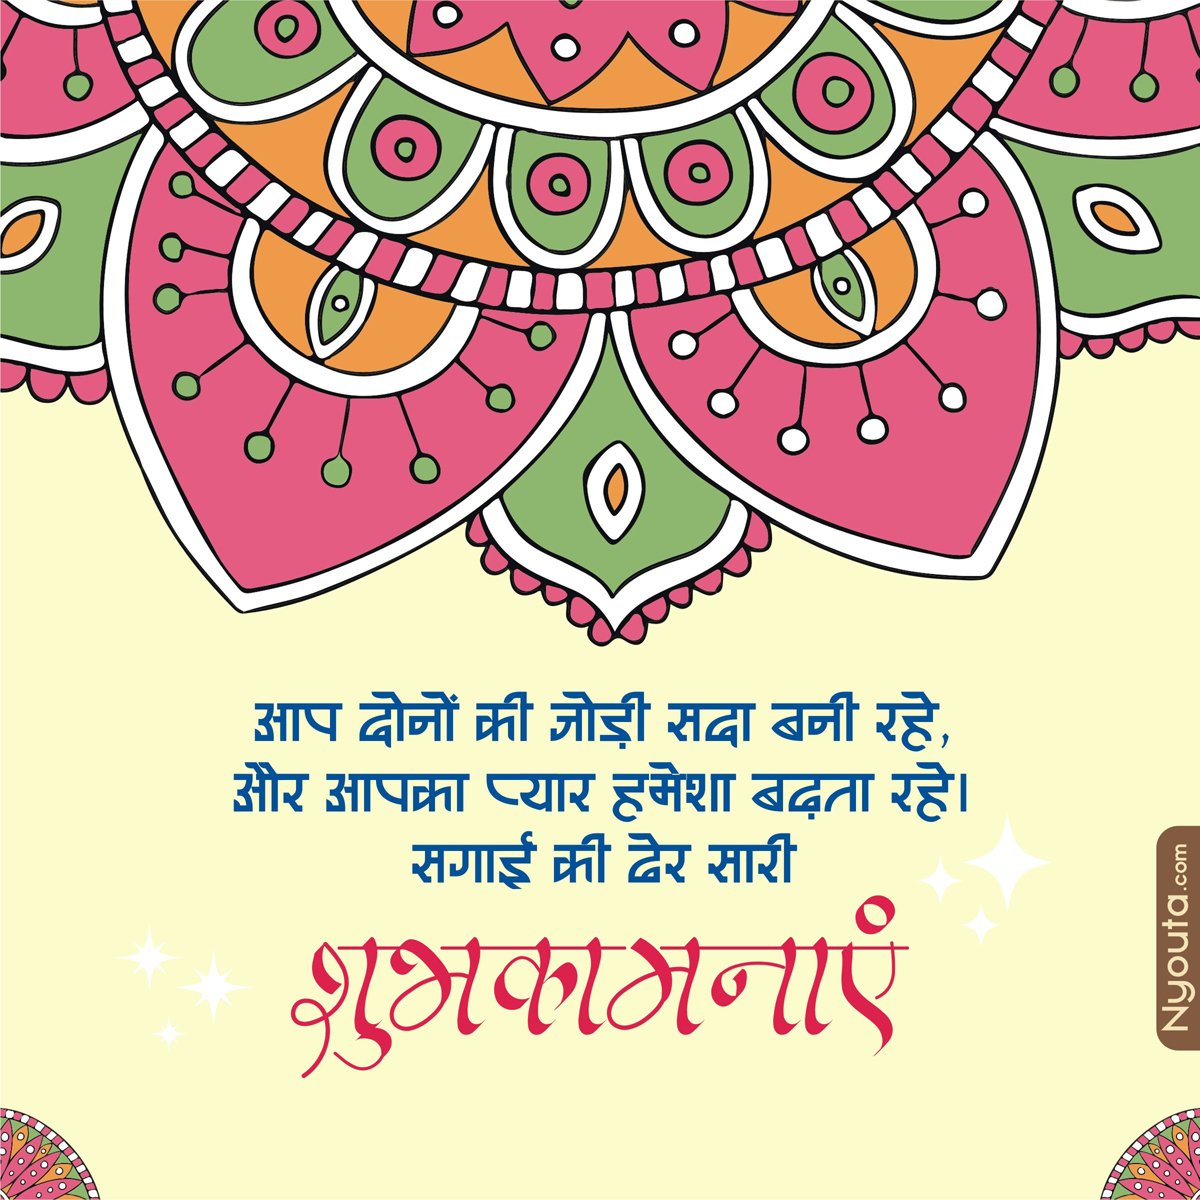 आप दोनों की जोड़ी सदा बनी रहे,
और आपका प्यार हमेशा बढ़ता रहे।
सगाई की ढेर सारी
शुभकामनाएं
Nyouta.com